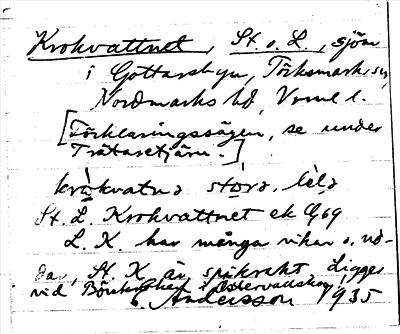 Krokvattnet, St. o. L., sjöar
i Gottarsbyn, Töcksmarks sn,
Nordmarks hd, Verml.
[Förklaringssägen, se under
Trätaretjärn.]
kròkvatnə storə, lelə
St. L. Krokvattnet ek G69
L. K. har många vikar o. ud-
dar, St. K. är spikrakt. Ligger
vid i Östervallskog,
Andersson 1935